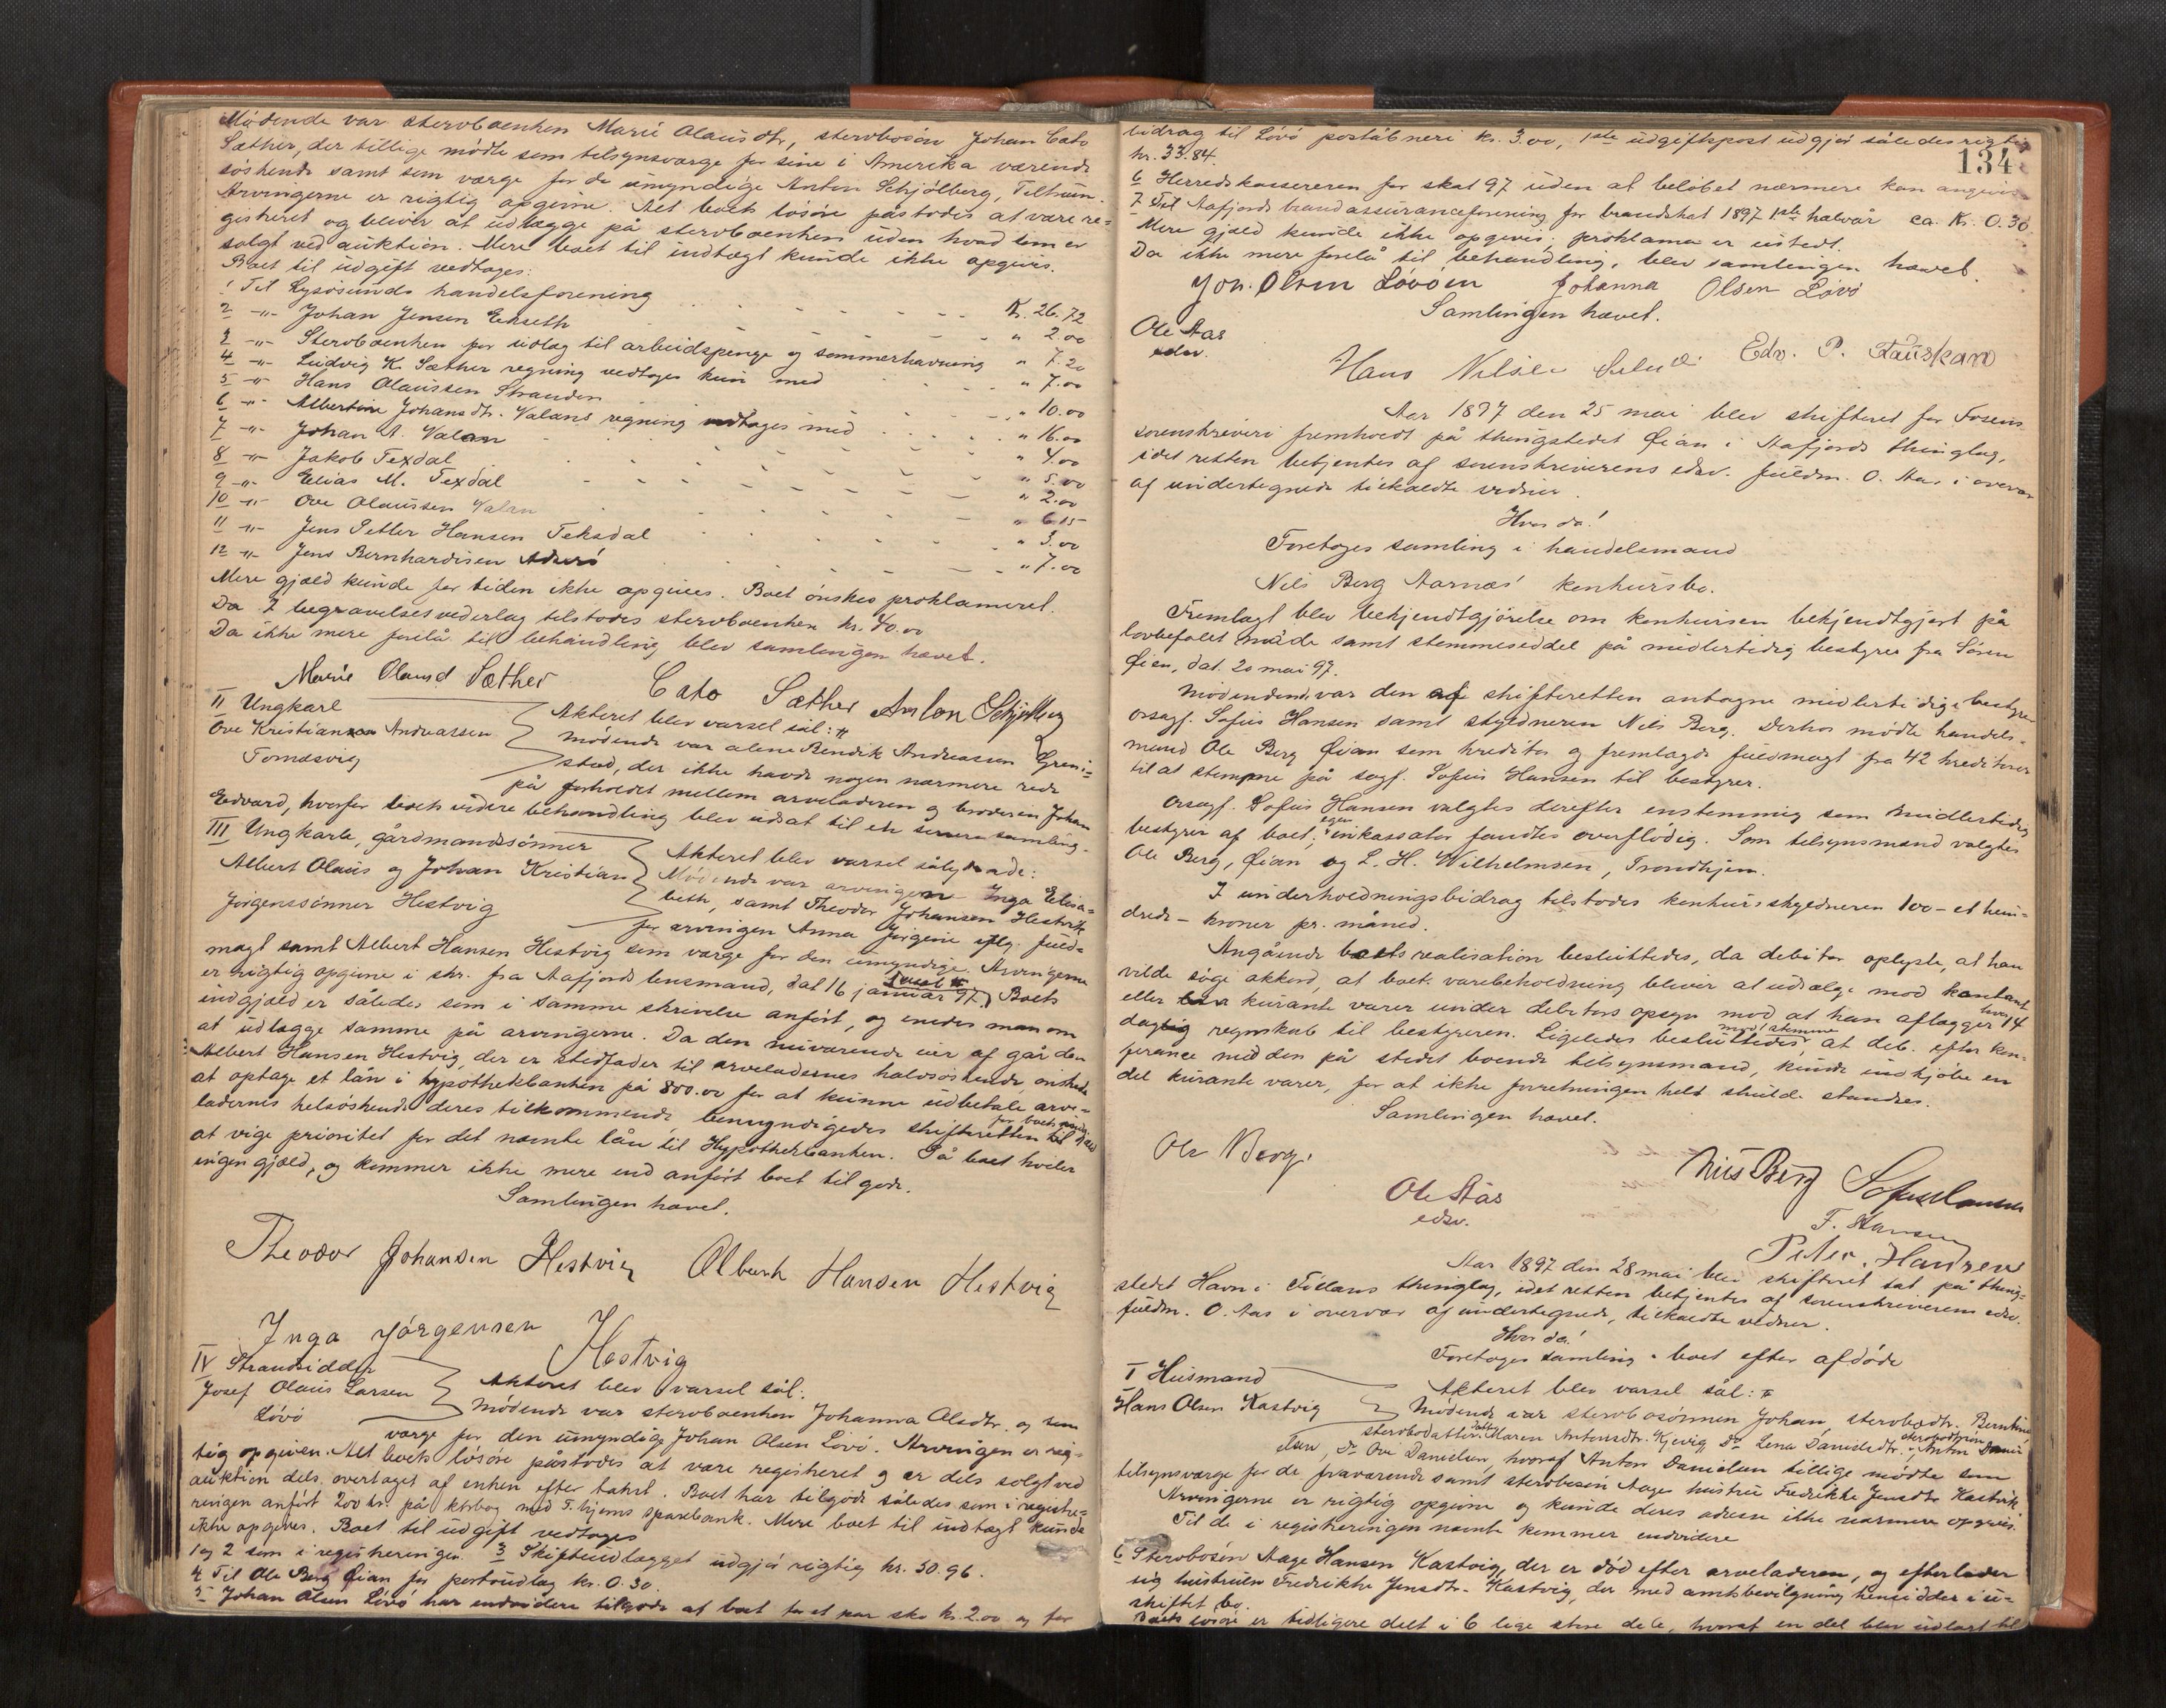 Mödende var stervboenken Marie Olausdtr, stervbosön Johan Cato
Sæther, der tillige mödte som tilsynsværge for sine i Amerika værende
söskende samt som værge for de umyndige Anton Schjölberg, Tiltrum.
Arvingerne er rigtig opgivne. Alt boets lösöre påstodes at være re-
gistreret og bliver at udlægge på stervboenken uden hvad som er
solgt ved auktion. Mere boet til indtægt kunde ikke opgives.
Boet til udgift vedtoges:
1 Til Lysösunds handelsforening Kr. 26.72
2 -"- Johan Jensen Ekseth " 2.00
3 -"- Stervboenken for udlag til arbeidspenge og sommerhavning " 7.20
4 -"- Ludvig K. Sæther regning vedtoges kun med " 7.00
5 -"- Hans Olaussen Stranden " 10.00
6 -"- Albertine Johansdtr. Valans regning vedtoges med " 16.00
7 -"- Johan A. Valan " 4.00
8 -"- Jakob Texdal " 5.00
9 -"- Elias M. Texdal " 2.00
10 -"- Ove Olaussen Valan " 6.15
11 -"- Jens Petter Hansen Teksdal " 3.00
12 -"- Jens Bernhardsen " 7.00
Mere gjæld kunde for tiden ikke opgives. Boet önskes proklameret.
Da I begravelsesvederlag tilstodes stervboenken kr. 40.00
Da ikke mere forelå til behandling blev samlingen hævet.
Marie Olausd Sæther Cato Sæther Anton Schjölberg
II Ungkarl
Ove Kristian Andreassen
Tomasvig
Akteret blev varsel sål:
Mödende var alene Bendik Andreassen Gren-
stad, der ikke havde nogen nærmere rede
på forholdet mellem arveladeren og broderen Johan
Edvard, hvorfor boets videre behandling blev udsat til en senere samling.
III Ungkarle, gårdmandssönner
Albert Olaus og Johan Kristian
Jörgenssönner Hestvig
Akteret blev varsel sålydende:
Mödende var arvingen Inga Elisa-
beth, samt Theodor Johansen Hestvik
for arvingen Anna Jörgine iflg. fuld-
magt samt Albert Hansen Hestvig som værge for den umyndige. Arvingerne
er rigtig opgivne i skr. fra Aafjords lensmand, dat 16 januar 97. Boets
indgjæld er således som i samme skrivelse anfört, og enedes man om
at udlægge samme på arvingerne. Da den nuværende eier af gården
Albert Hansen Hestvig, der er stedfader til arveladernes halvsöskende önskede
at optage et lån i hypothekbanken på 800.00 for at kunne udbetale arve-
ladernes helsöskende deres tilkommende, bemyndigedes skifteretten til
at vige prioritet for det nævnte lån til Hypothekbanken. På boet hviler
ingen gjæld, og kommer ikke mere end anfört boet til gode.
Samlingen hævet.
Theodor Johansen Hestvig Albert Hansen Hestvig
Inga Jörgensen
Hestvig
IV Strandsidder
Josef Olaus Larsen
Lövö
Akteret blev varsel sål:
Mödende var stervboenken Johanna Olsdtr. og som
værge for den umyndige Johan Olsen Lövö. Arvingen er rig-
tig opgiven. Alt boets lösöre påstodes at være registreret og er dels solgt ved
auktion dels overtaget af enken efter takst. Boet har tilgode således som i registre-
ringen anfört 200 kr. på ktrbog med T.hjems sparebank. Mere boet til indtægt kunde
ikke opgives. Boet til udgift vedtoges
1 og 2 som i registreringen. 3 Skifteudlægget udgjör rigtig kr. 30.96.
4 Til Ole Berg Öian for portoudlæg kr. 0.30.
5 Johan Olsen Lövö har endvidere tilgode af boet for et par sko kr. 2.00 og for
134
bidrag til Lövö poståbneri kr. 3.00, 1ste udgiftspost udgjör således rigtig
kr. 33.84.
6 Herredskassereren for skat 97 uden at belöbet nærmere kan angives
7 Til Aafjords brandassuranceforening for brandskat 1897 1ste halvår ca. Kr. 0.30
Mere gjæld kunde ikke opgives; proklama er udstedt.
Da ikke mere forelå til behandling, blev samlingen hævet.
Joh. Olsen Lövöen Johanna Olsen Lövö
Samlingen hævet.
Ole Aas
edsv.
Hans Nilsen Edv. P. Fauskan
Aar 1897 den 25 mai blev skifteret for Fosens
sorenskriveri fremholdt på thingstedet Öian i Aafjords thinglag,
idet retten betjentes af sorenskriverens edsv. fuldm. O. Aas i overvær
af undertegnede tilkaldte vidner.
Hvor da!
Foretoges samling i handelsmand
Nils Berg Aarnæs' konkursbo.
Fremlagt blev bekjendtgjörelse om konkursen bekjendtgjort på
lovbefalet måde samt stemmeseddel på midlertidig bestyrer fra Sören
Öien, dat. 20 mai 97.
Mödende var den af skifteretten antagne midlertidige bestyrer
orsagf. Sofus Hansen samt skyldneren Nils Berg. Derhos mödte handels-
mand Ole Berg Öian som kreditor og fremlagde fuldmagt fra 42 kreditorer
til at stemme på sagf. Sofus Hansen til bestyrer.
Orsagf. Sofus Hansen valgtes derefter enstemmig som midlertidig
bestyrer af boet; egen inkassator fandtes overflödig. Som tilsynsmænd valgtes
Ole Berg, Öian og L. H. Wilhelmsen, Trondhjem.
I underholdningsbidrag tilstodes konkursskyldneren 100 - et hun-
drede - kroner pr. måned.
Angående boets realisation besluttedes, da debitor oplyste, at han
vilde söge akkord, at boets varebeholdning bliver at udsælge mod kontant
eller kurante varer under debitors opsyn mod at han aflægger hver 14
daglig regnskab til bestyreren. Ligeledes besluttedes, at deb. efter kon-
ferance med den på stedet boende tilsynsmand, kunde indkjöbe en
del kurante varer, for at ikke forretningen helt skulde standses.
Samlingen hævet.
Ole Berg.
Nils Berg Sofus Hansen
Ole Aas
edsv.
F. Hansen
Peter Handsen
Aar 1897 den 28 mai blev skifteret sat på thing-
stedet Havn i Fillans thinglag, idet retten betjentes af sorenskriverens edsv.
fuldm. O. Aas i overvær af undertegnede, tilkaldte vidner.
Hvor da!
Foretoges samling i boet efter afdöde
I Husmand
Hans Olsen Kastvig
Akteret blev varsel sål:
Mödende var stervbosönnen Johan, stervbodtr. Berntine
stervbodatter datter Maren Antonsdtr. Kjevig, Do Lena Danielsdtr., stervbodtrsön Anton Dani-
elsen, Do Ove Danielsen, hvoraf Anton Danielsen tillige mödte som
tilsynsværge for de fraværende samt stervbosön Aages hustru Fredrikke Jensdtr Kastvik
Arvingerne er rigtig opgivne og kunde deres adresse ikke nærmere opgives.
Til de i registreringen nævnte kommer endvidere
6 Stervbosön Aage Hansen Kastvig, der er död efter arveladeren, og efterlader
sig hustruen Fredrikke Jensdtr. Kastvig, der med amtsbevilgning hensidder i u-
skiftet bo.
Boets lösöre er tidligere delt i 6 lige store dele, hvoraf en del blev udlagt til